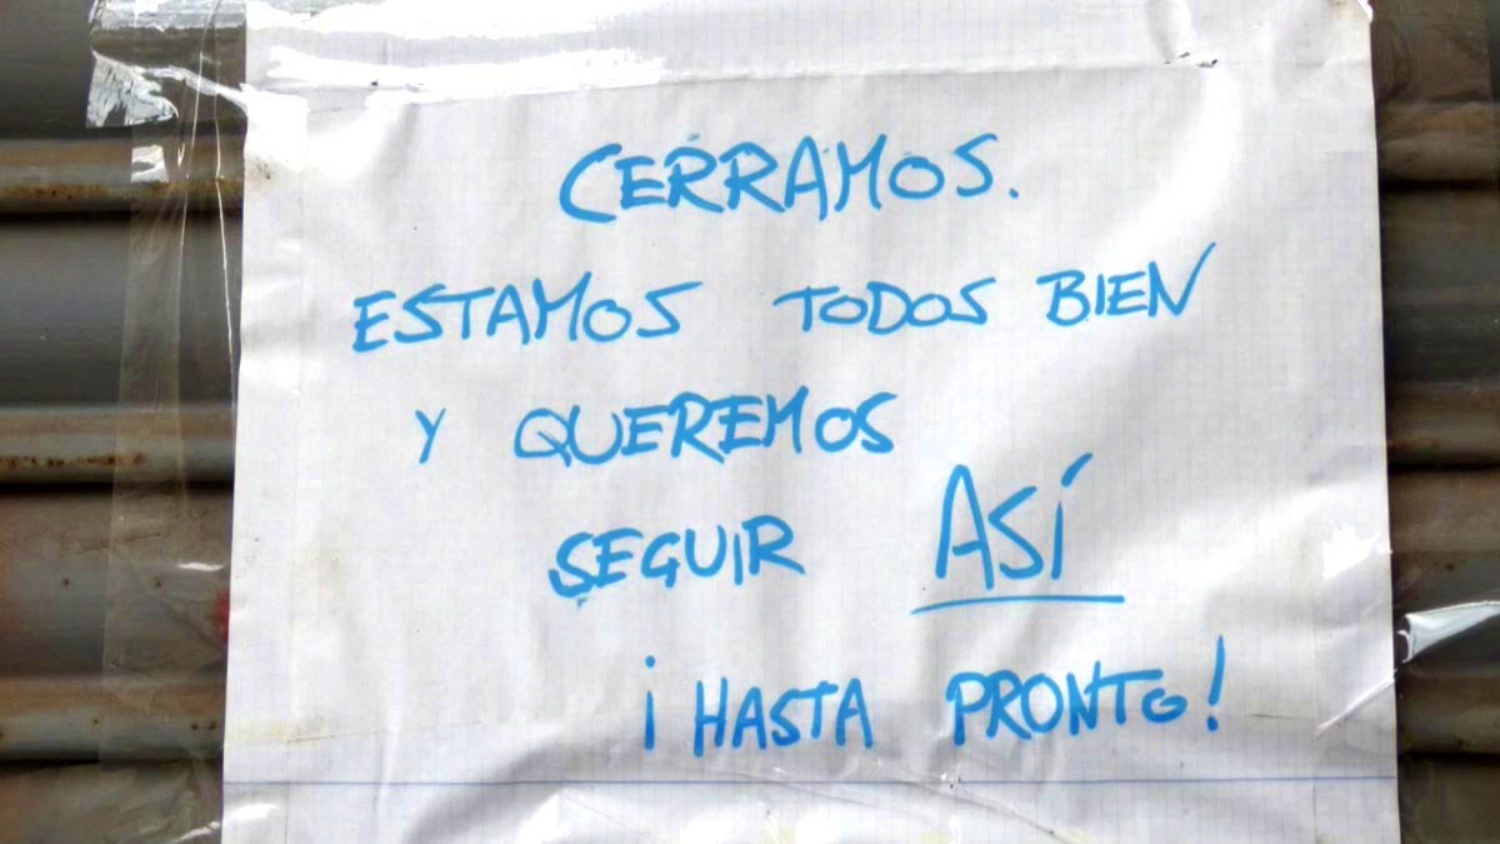 CERRAMOS.
ESTAMOS TODOS BIEN
Y QUEREMOS
SEGUIR ASÍ
¡HASTA PRONTO!